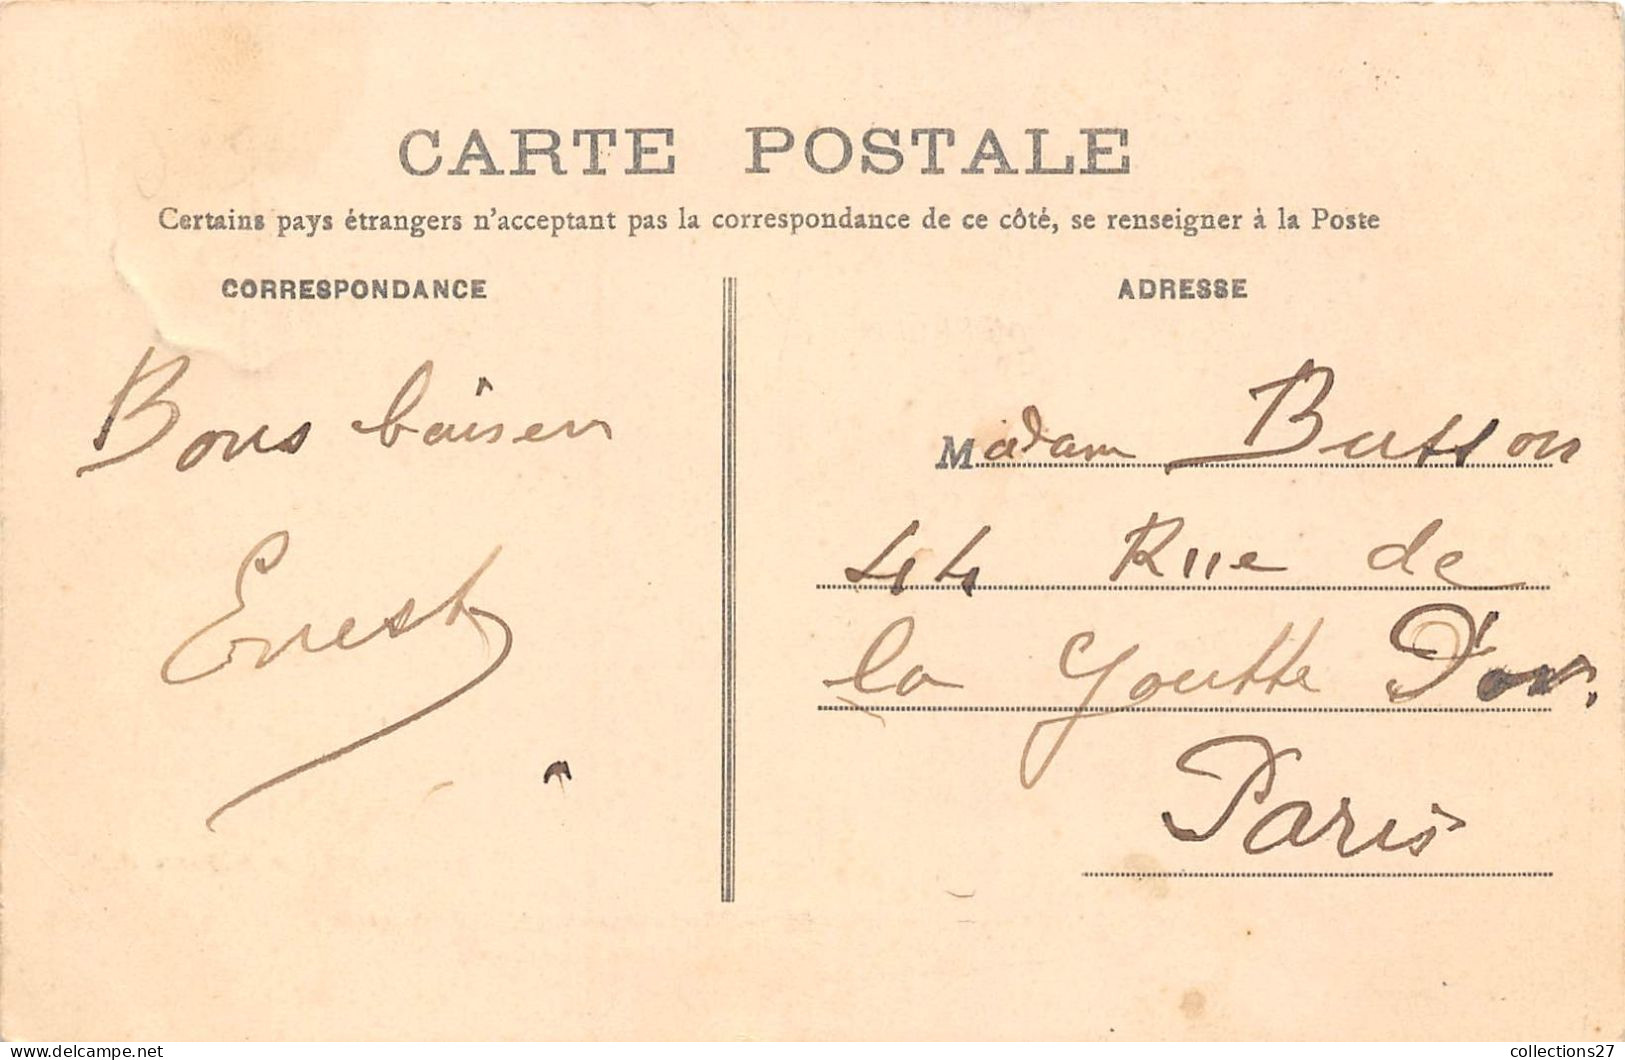 CARTE POSTALE
Certains pays étrangers n'acceptant pas la correspondance de ce côté, se renseigner à la Poste
CORRESPONDANCE
Bons baisers
Ernest
ADRESSE
Madam Busson
44 Rue de
la Goutte D'or,
Paris
collections27